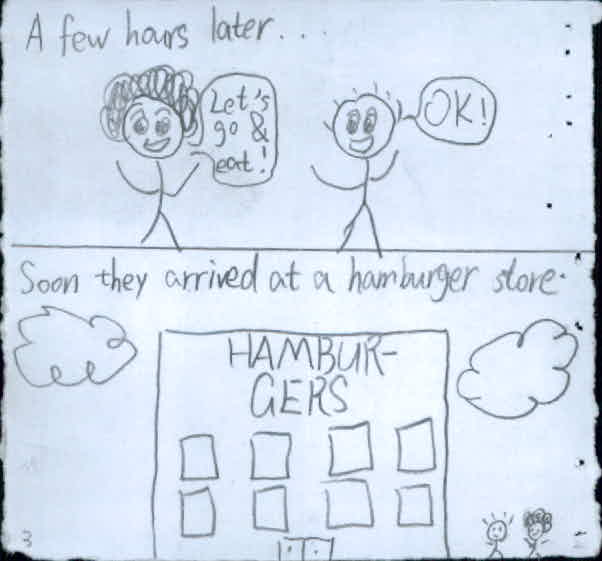 A few hours later...
Let's
go &
eat!
OK!
Soon they arrived at a hamburger store.
HAMBUR-
GERS
3